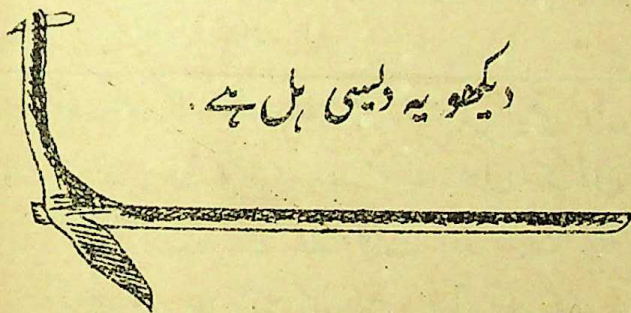 دیکھو یہ دیسی ہل ہے۔